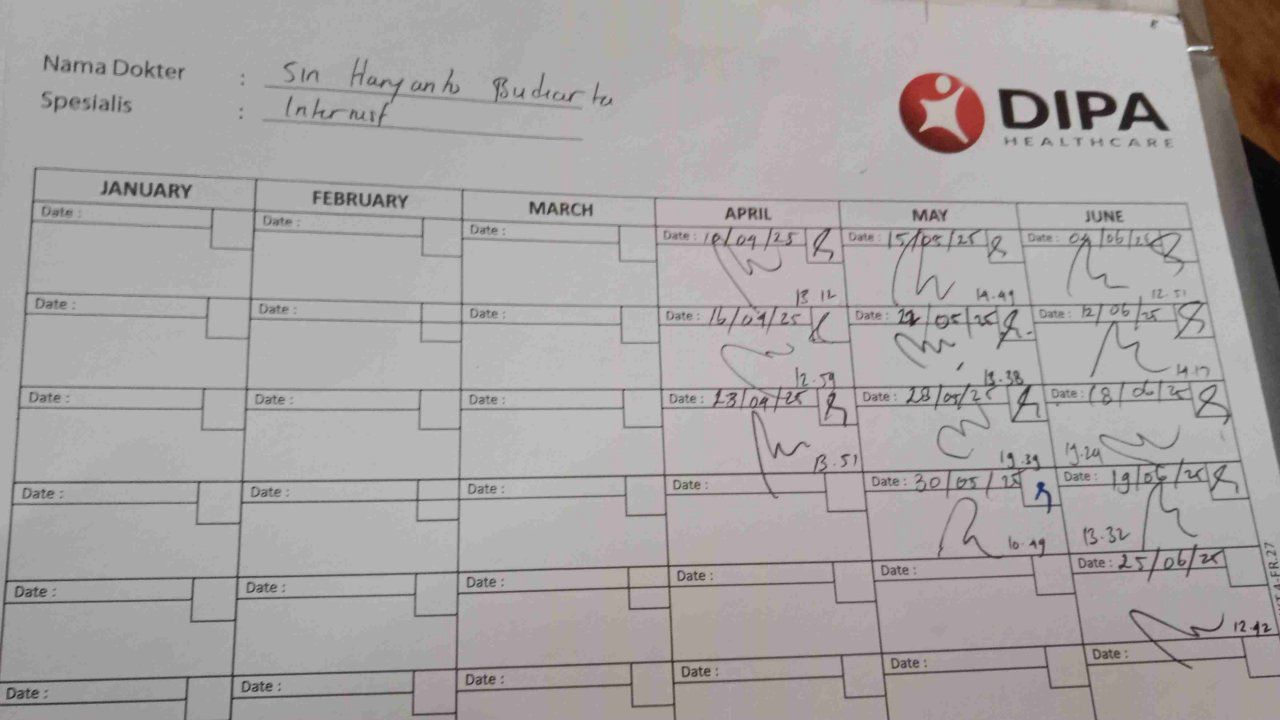 Nama Dokter : Sin Haryanto Budiarta
Spesialis : Internist
DIPA
HEALTHCARE
JANUARY FEBRUARY MARCH APRIL MAY JUNE
Date : Date : Date : Date : 10/04/25 Date : 15/05/25 Date : 04/06/25
13.12 14.49 12.51
Date : Date : Date : Date : 16/04/25 Date : 22/05/25 Date : 12/06/25
12.59 13.38 14.17
Date : Date : Date : Date : 23/04/25 Date : 28/05/25 Date : 18/06/25
13.51 19.39 19.24
Date : Date : Date : Date : Date : 30/05/25 Date : 19/06/25
10.49 13.32
Date : Date : Date : Date : Date : Date : 25/06/25
12.42
Date : Date : Date : Date : Date : Date :